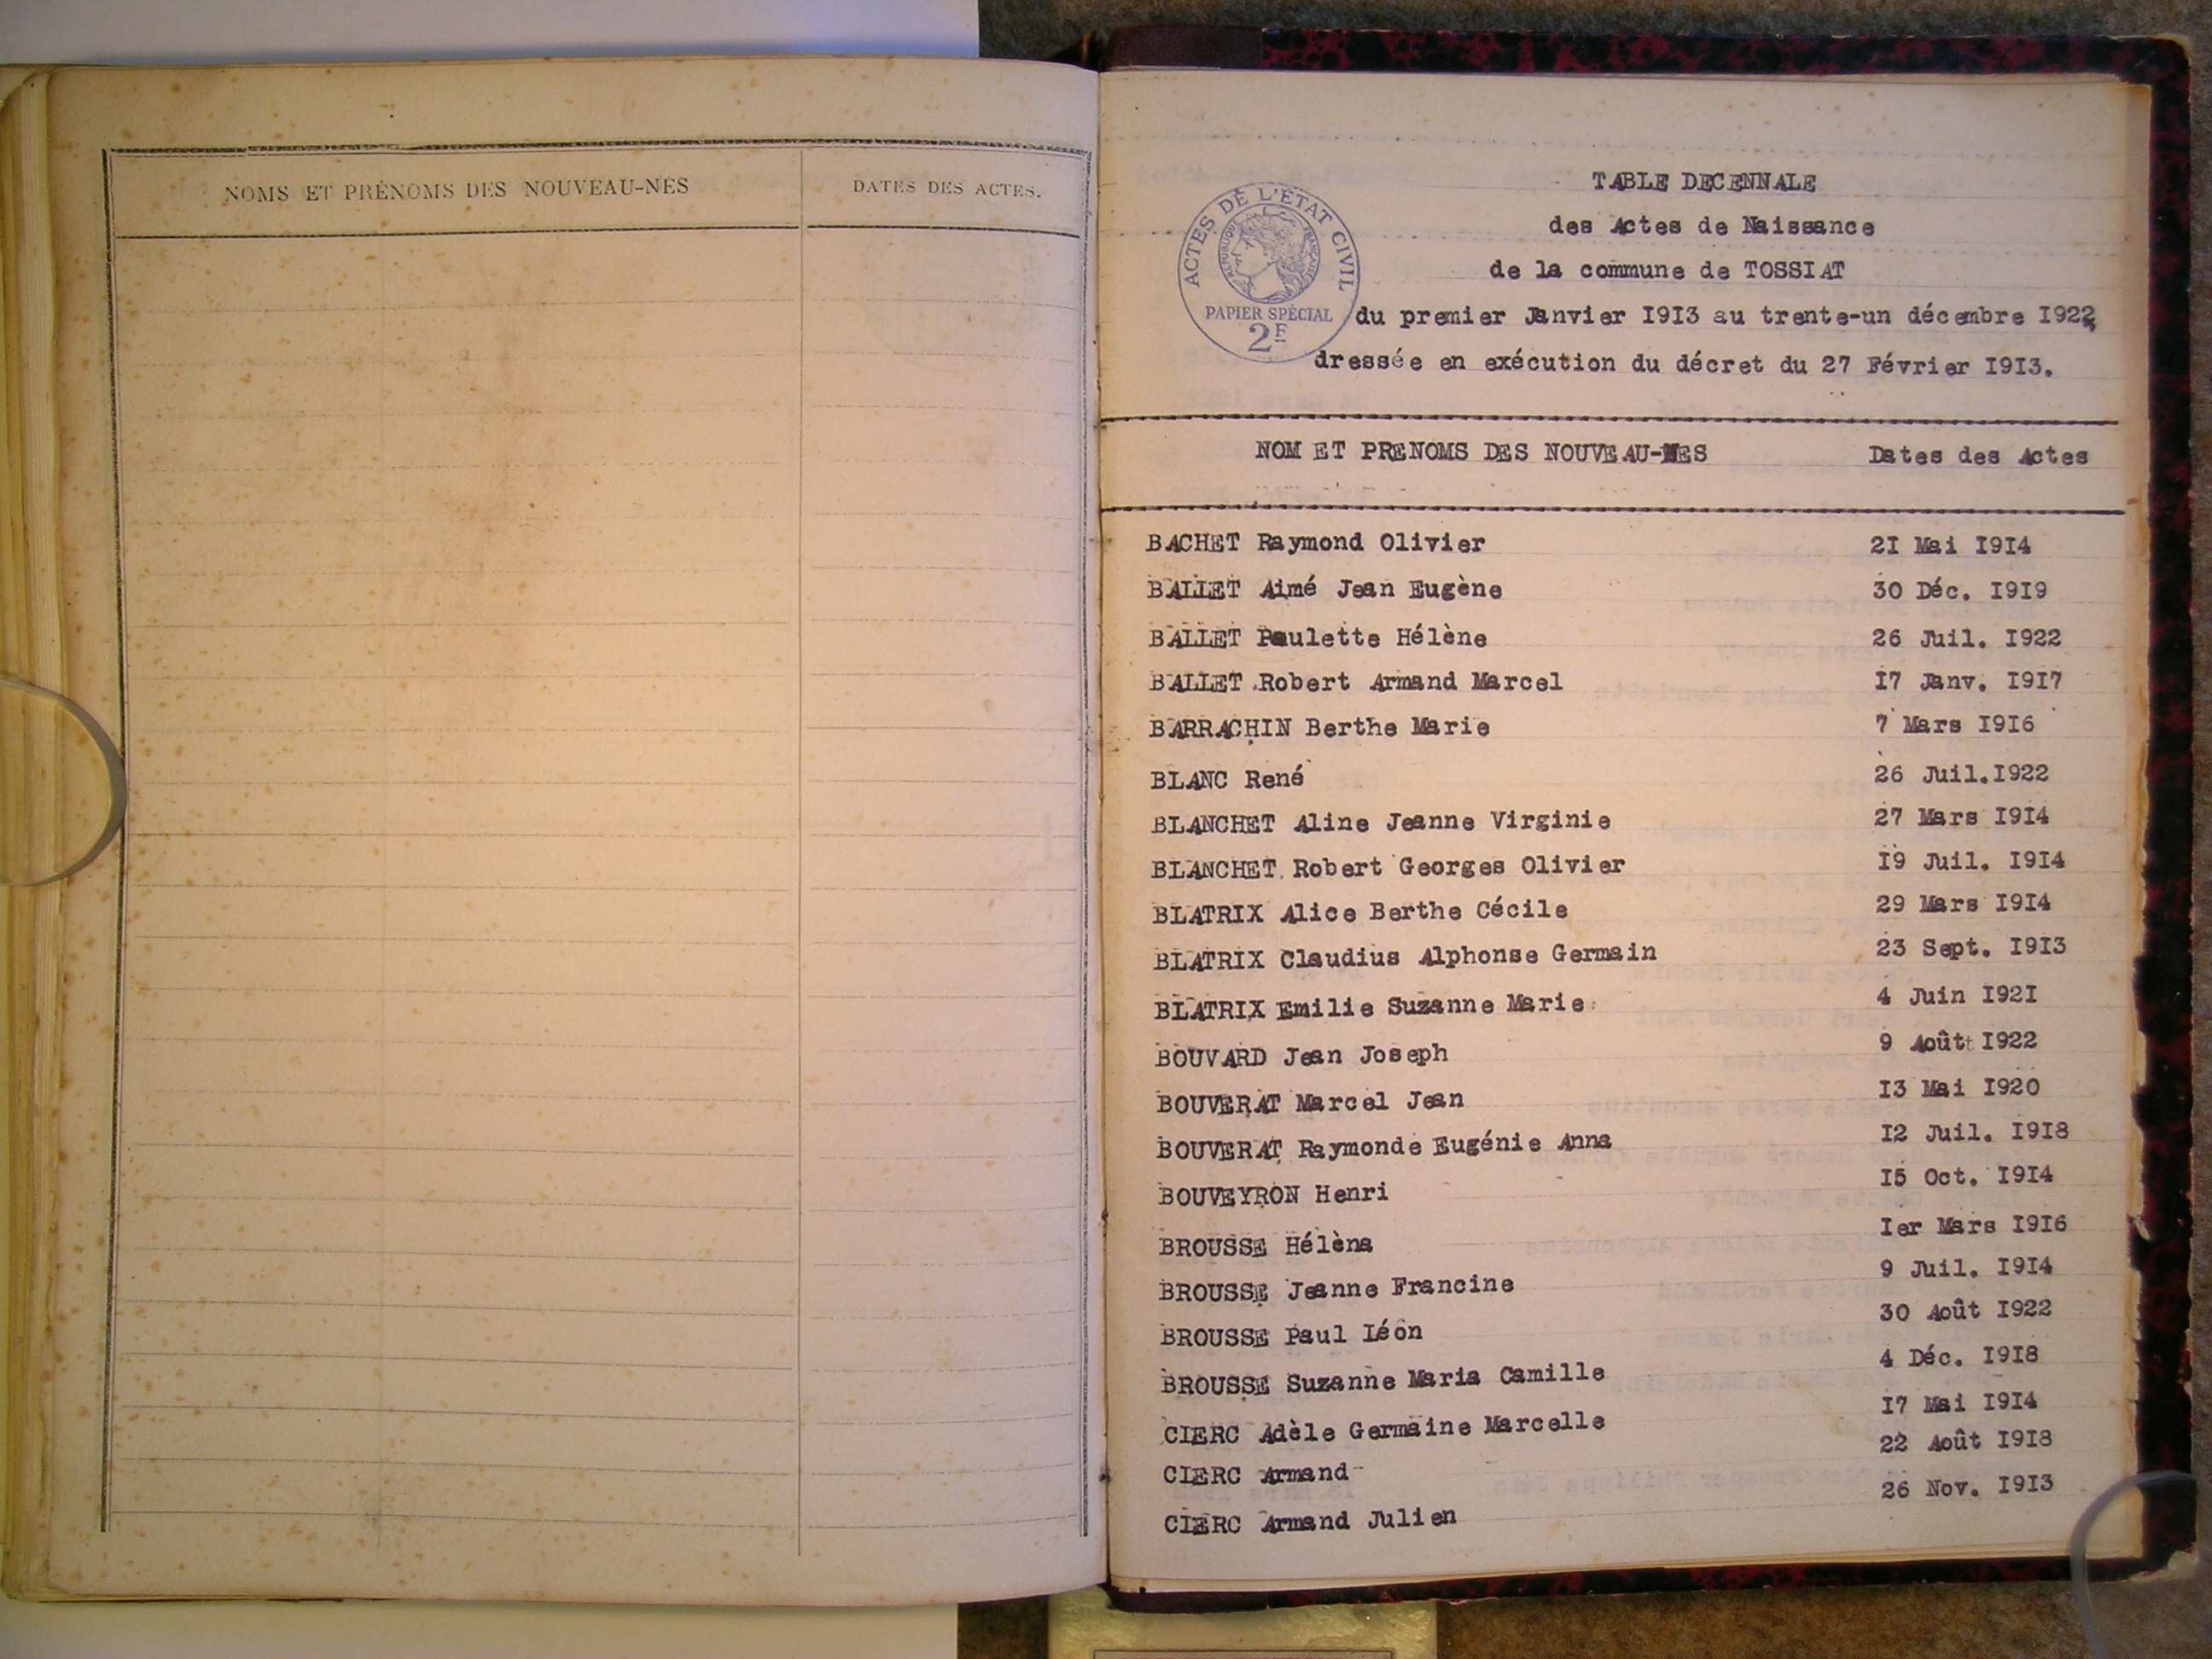 NOMS ET PRÉNOMS DES NOUVEAU-NÉS
DATES DES ACTES.
ACTES DE L'ÉTAT CIVIL
RÉPUBLIQUE FRANÇAISE
PAPIER SPÉCIAL
2F
TABLE DECENNALE
des Actes de Naissance
de la commune de TOSSIAT
du premier Janvier I9I3 au trente-un décembre I922
dressée en exécution du décret du 27 Février I9I3.
NOM ET PRENOMS DES NOUVEAU-NES Dates des Actes
BACHET Raymond Olivier 2I Mai I9I4
BALLET Aimé Jean Eugène 30 Déc. I9I9
BALLET Paulette Hélène 26 Juil. I922
BALLET Robert Armand Marcel I7 Janv. I9I7
BARRACHIN Berthe Marie 7 Mars I9I6
BLANC René 26 Juil.I922
BLANCHET Aline Jeanne Virginie 27 Mars I9I4
BLANCHET Robert Georges Olivier I9 Juil. I9I4
BLATRIX Alice Berthe Cécile 29 Mars I9I4
BLATRIX Claudius Alphonse Germain 23 Sept. I9I3
BLATRIX Emilie Suzanne Marie 4 Juin I92I
BOUVARD Jean Joseph 9 Août I922
BOUVERAT Marcel Jean I3 Mai I920
BOUVERAT Raymonde Eugénie Anna I2 Juil. I9I8
BOUVEYRON Henri I5 Oct. I9I4
BROUSSE Hélèna Ier Mars I9I6
BROUSSE Jeanne Francine 9 Juil. I9I4
BROUSSE Paul Léon 30 Août I922
BROUSSE Suzanne Maria Camille 4 Déc. I9I8
CLERC Adèle Germaine Marcelle I7 Mai I9I4
CLERC Armand 22 Août I9I8
CLERC Armand Julien 26 Nov. I9I3